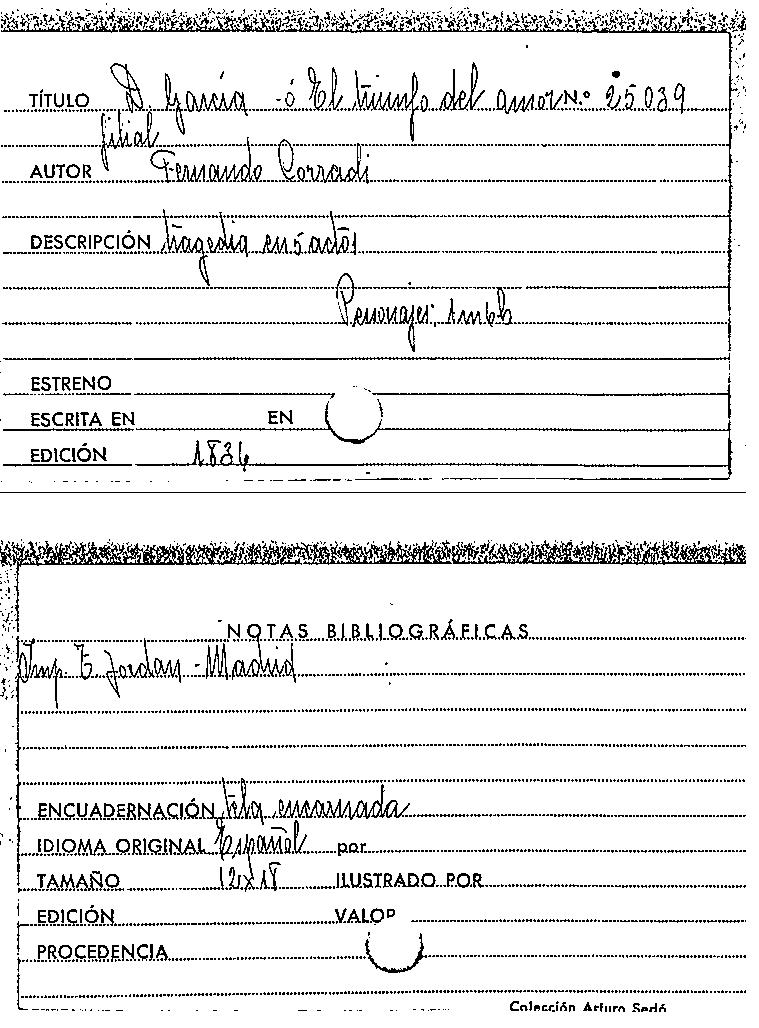 TÍTULO D. García ó El triunfo del amor N.º 25039
filial
AUTOR Fernando Corradi
DESCRIPCIÓN tragedia en 5 actos
Personajes: 1m 6h
ESTRENO
ESCRITA EN EN
EDICIÓN 1836
NOTAS BIBLIOGRÁFICAS
Imp. T. Jordan - Madrid
ENCUADERNACIÓN tela encarnada
IDIOMA ORIGINAL Español por
TAMAÑO 12x18 ILUSTRADO POR
EDICIÓN VALOR
PROCEDENCIA
Colección Arturo Sedó